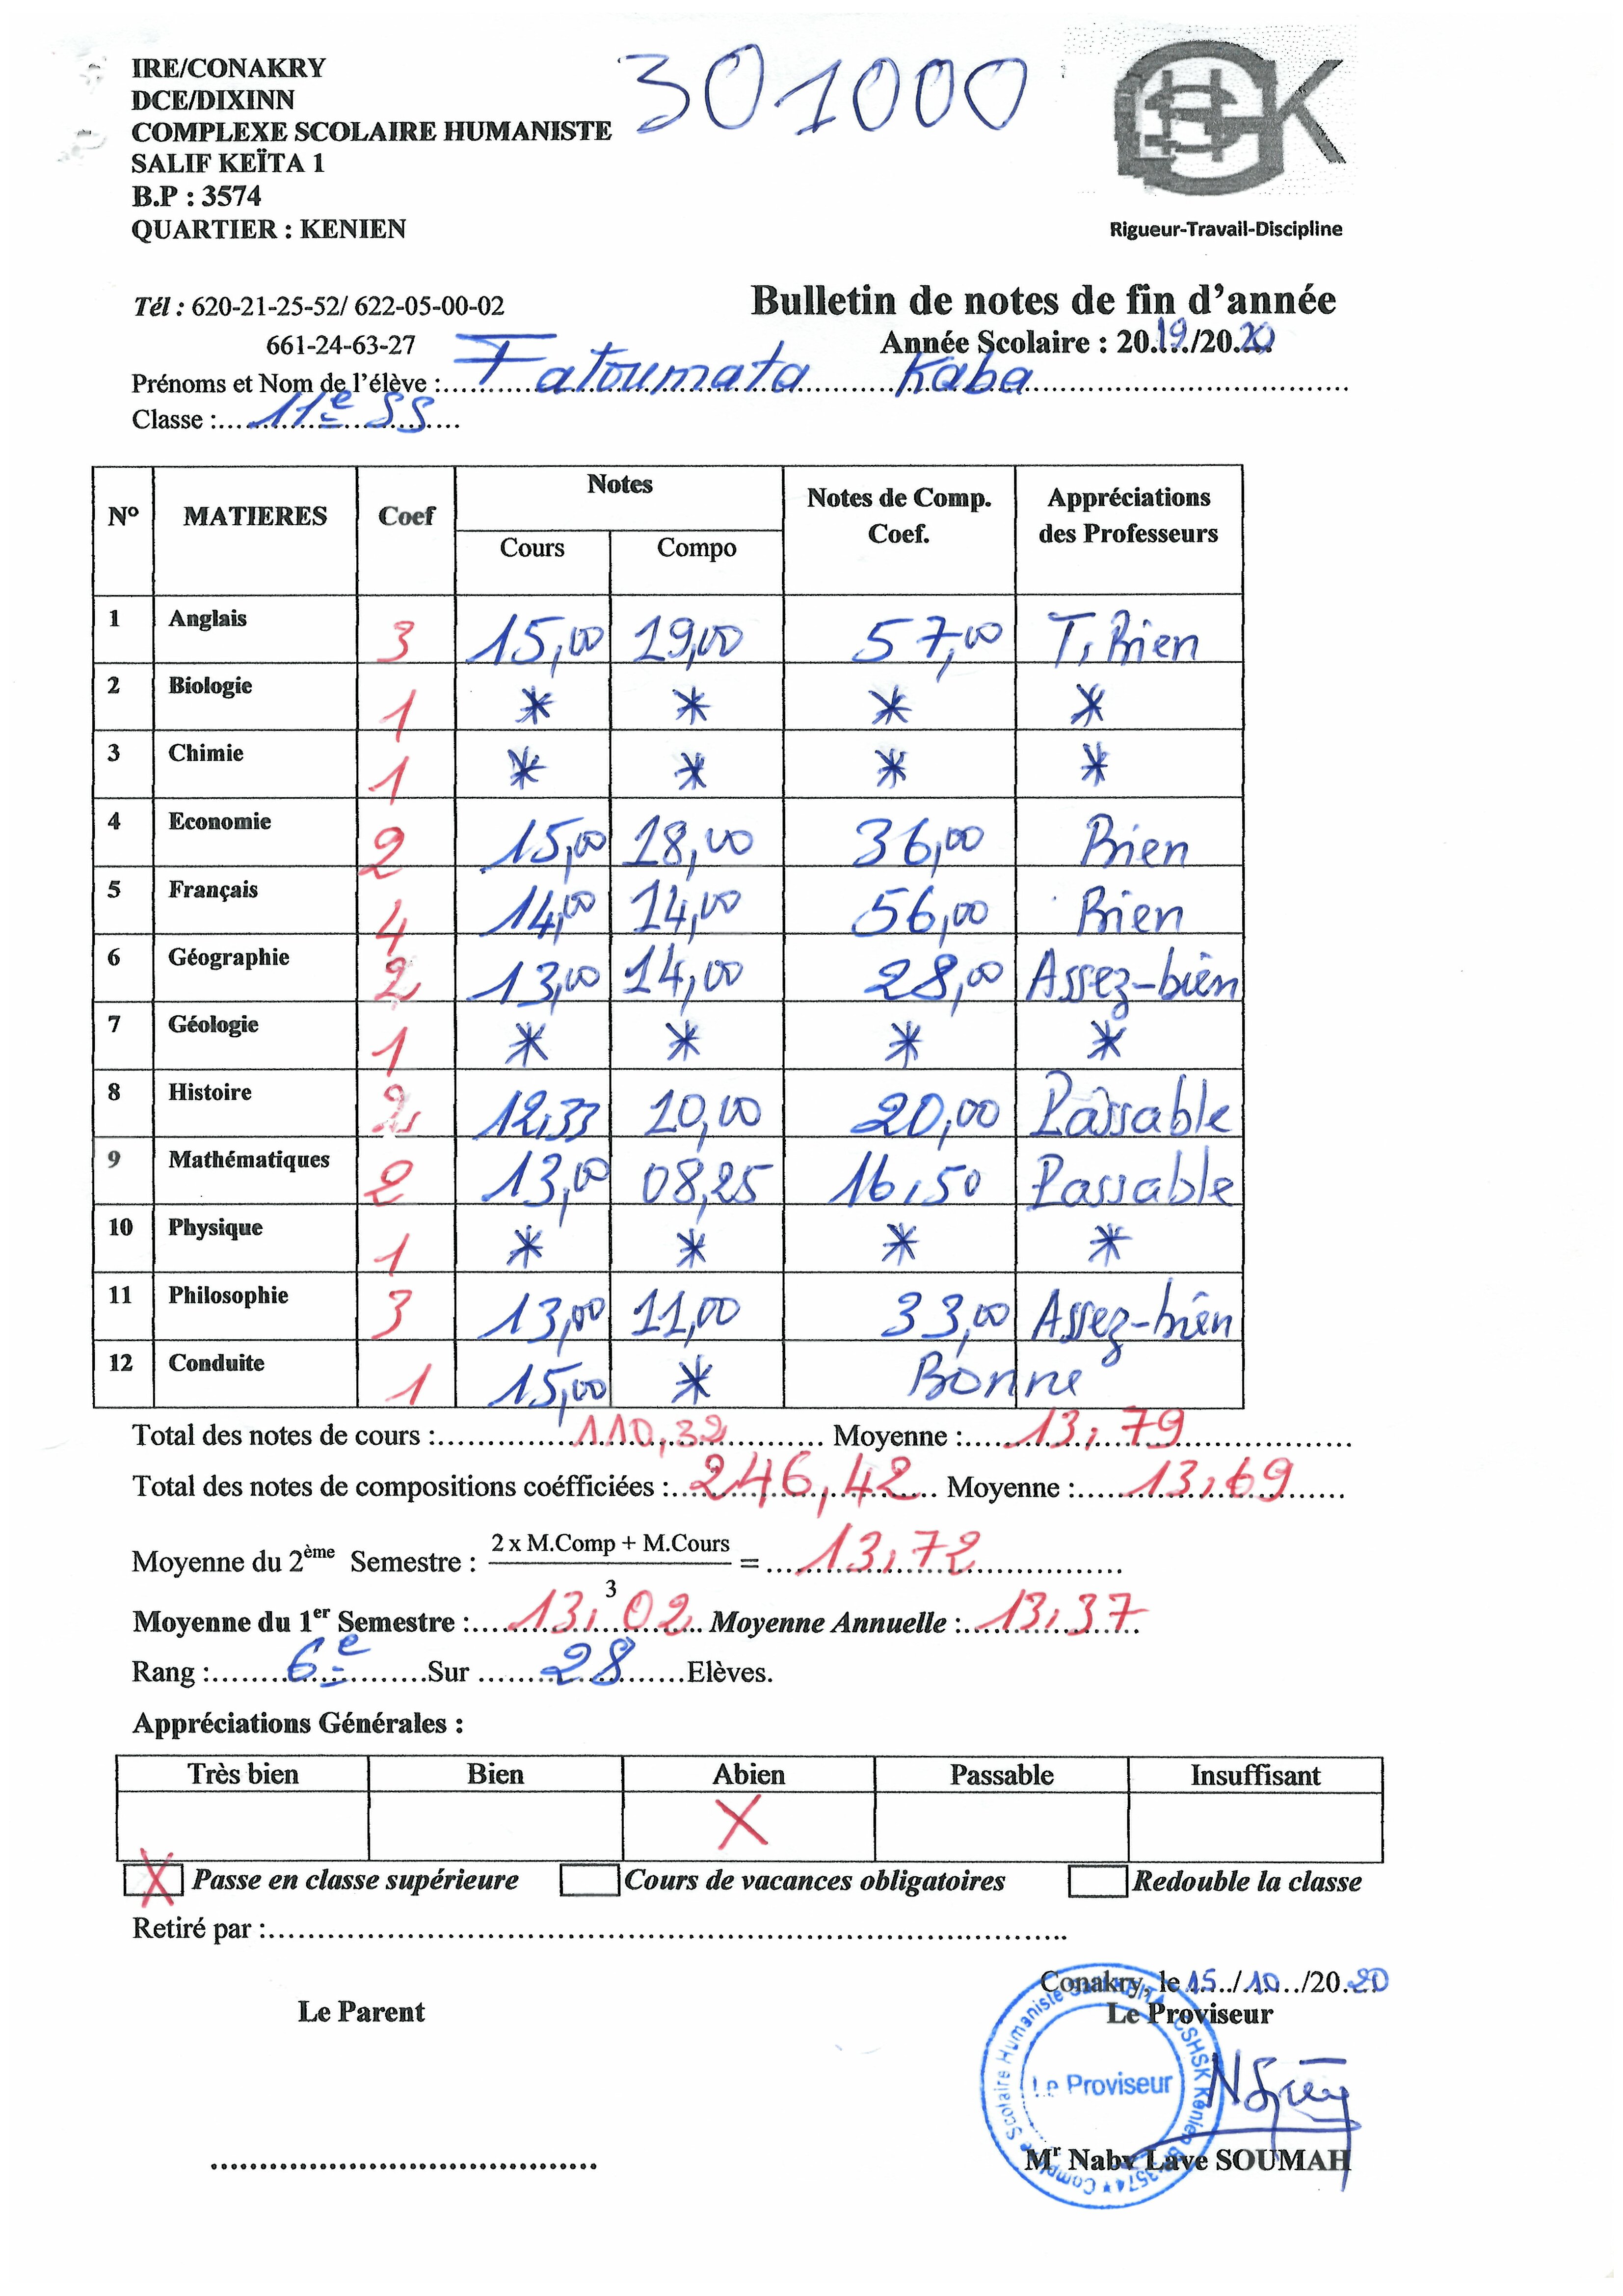 301000
IRE/CONAKRY
DCE/DIXINN
COMPLEXE SCOLAIRE HUMANISTE
SALIF KEÏTA 1
B.P : 3574
QUARTIER : KENIEN
Rigueur-Travail-Discipline
Tél : 620-21-25-52/ 622-05-00-02
661-24-63-27
Bulletin de notes de fin d'année
Année Scolaire : 2019/2020
Prénoms et Nom de l'élève : Fatoumata Kaba
Classe : 11e SS
N° MATIERES Coef Notes Notes de Comp. Coef. Appréciations des Professeurs
Cours Compo
1 Anglais 3 15,00 19,00 57,00 T. Bien
2 Biologie 1 * * * *
3 Chimie 1 * * * *
4 Economie 2 15,00 18,00 36,00 Bien
5 Français 4 14,00 14,00 56,00 Bien
6 Géographie 2 13,00 14,00 28,00 Assez-bien
7 Géologie 1 * * * *
8 Histoire 2 12,33 10,00 20,00 Passable
9 Mathématiques 2 13,00 08,25 16,50 Passable
10 Physique 1 * * * *
11 Philosophie 3 13,00 11,00 33,00 Assez-bien
12 Conduite 1 15,00 * Bonne
Total des notes de cours : 110,32 Moyenne : 13,79
Total des notes de compositions coéfficiées : 246,42 Moyenne : 13,69
Moyenne du 2ème Semestre : 2 x M.Comp + M.Cours / 3 = 13,72
Moyenne du 1er Semestre : 13,02 Moyenne Annuelle : 13,37
Rang : 6e Sur 28 Elèves.
Appréciations Générales :
Très bien Bien Abien Passable Insuffisant
X
X Passe en classe supérieure Cours de vacances obligatoires Redouble la classe
Retiré par :
Conakry, le 15/10/2020
Le Parent Le Proviseur
Complexe Scolaire Humaniste Salif KEITA CSHSK Kénien BP 3574
Le Proviseur
Mr Naby Laye SOUMAH